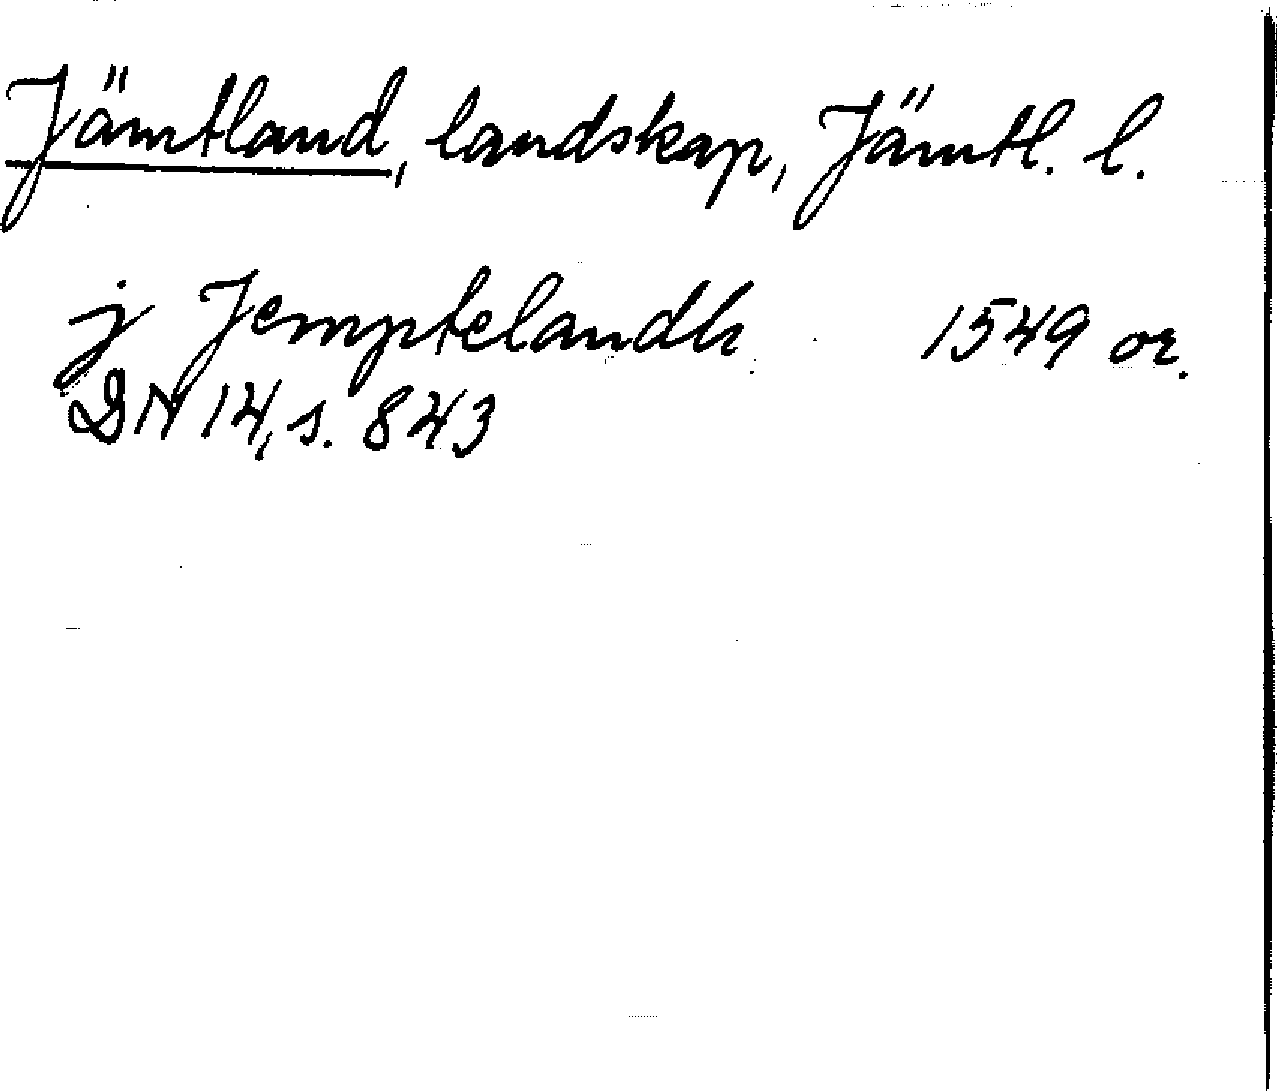 Jämtland, landskap, Jämtl. l.
j Jemptelandh 1549 or.
DN 14, s. 843